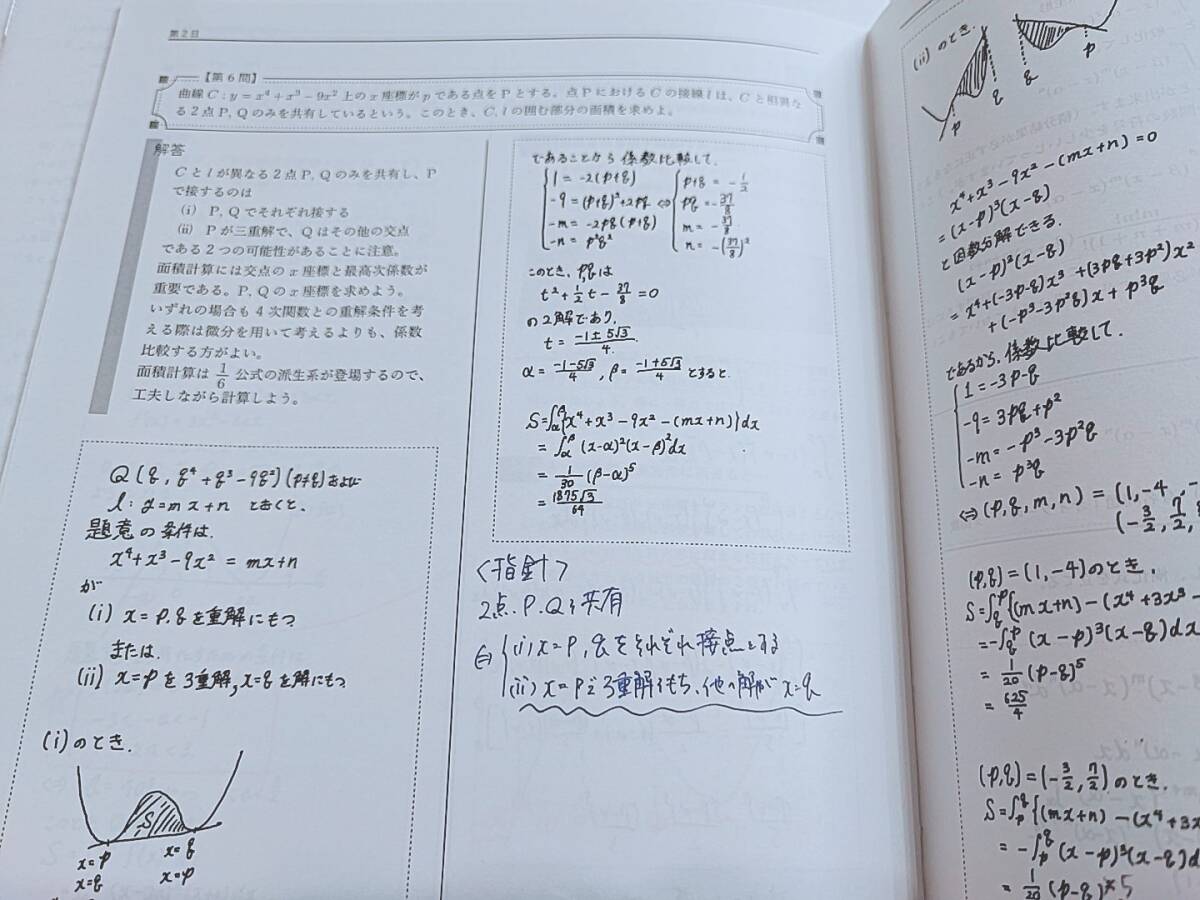 第2日
【第6問】
曲線 C : y = x⁴ + x³ − 9x² 上の x 座標が p である点を P とする。点 P における C の接線 l は、C と相異な
る 2 点 P, Q のみを共有しているという。このとき、C, l の囲む部分の面積を求めよ。
解答
C と l が異なる 2 点 P, Q のみを共有し、P
で接するのは
(i) P, Q でそれぞれ接する
(ii) P が三重解で、Q はその他の交点
である 2 つの可能性があることに注意。
面積計算には交点の x 座標と最高次係数が
重要である。P, Q の x 座標を求めよう。
いずれの場合も 4 次関数との重解条件を考
える際は微分を用いて考えるよりも、係数
比較する方がよい。
面積計算は 1/6 公式の派生系が登場するので、
工夫しながら計算しよう。
Q(q, q⁴+q³−9q²) (p≠q) および
l: y=mx+n とおくと、
題意の条件は、
x⁴+x³−9x² = mx+n
が
(i) x=p, q を重解にもつ
または、
(ii) x=p を3重解, x=q を解にもつ
(i) のとき、
S
x=p x=q
x=q x=p
であることから 係数比較して、
1 = −2(p+q) p+q = −1/2
−9 = (p+q)²+2pq ⇔ pq = −37/8
−m = −2pq(p+q) m = −37/8
−n = p²q² n = −(37/8)²
このとき、p,q は
t²+1/2 t−37/8 = 0
の2解であり、
t = (−1±5√3)/4
α = (−1−5√3)/4 , β = (−1+5√3)/4 とすると、
S = ∫α^β {x⁴+x³−9x²−(mx+n)}dx
= ∫α^β (x−α)²(x−β)²dx
= 1/30 (β−α)⁵
= 1875√3/64
〈指針〉
2点、P、Qを共有
⇔ (i) x=P, q をそれぞれ接点とする
(ii) x=Pで3重解をもち、他の解が x=q
(ii) のとき、
p q q p
x⁴+x³−9x²−(mx+n)=0
=(x−p)³(x−q)
と因数分解できる。
(x−p)³(x−q)
= x⁴+(−3p−q)x³+(3pq+3p²)x²
+(−p³−3p²q)x+p³q
であるから、係数比較して、
1 = −3p−q
−9 = 3pq+p²
−m = −p³−3p²q
−n = p³q
⇔ (p, q, m, n) = (1, −4
(−3/2, 7/2,
(p,q) = (1,−4) のとき、
S = ∫q^p {(mx+n)−(x⁴+3x³−
= −∫q^p (x−p)³(x−q)dx
= 1/20 (p−q)⁵
= 625/4
(p,q) = (−3/2, 7/2) のとき、
S = ∫p^q {(mx+n)−(x⁴+3x
= −∫p^q (x−p)³(x−q)dx
= 1/20 (p−q)^5